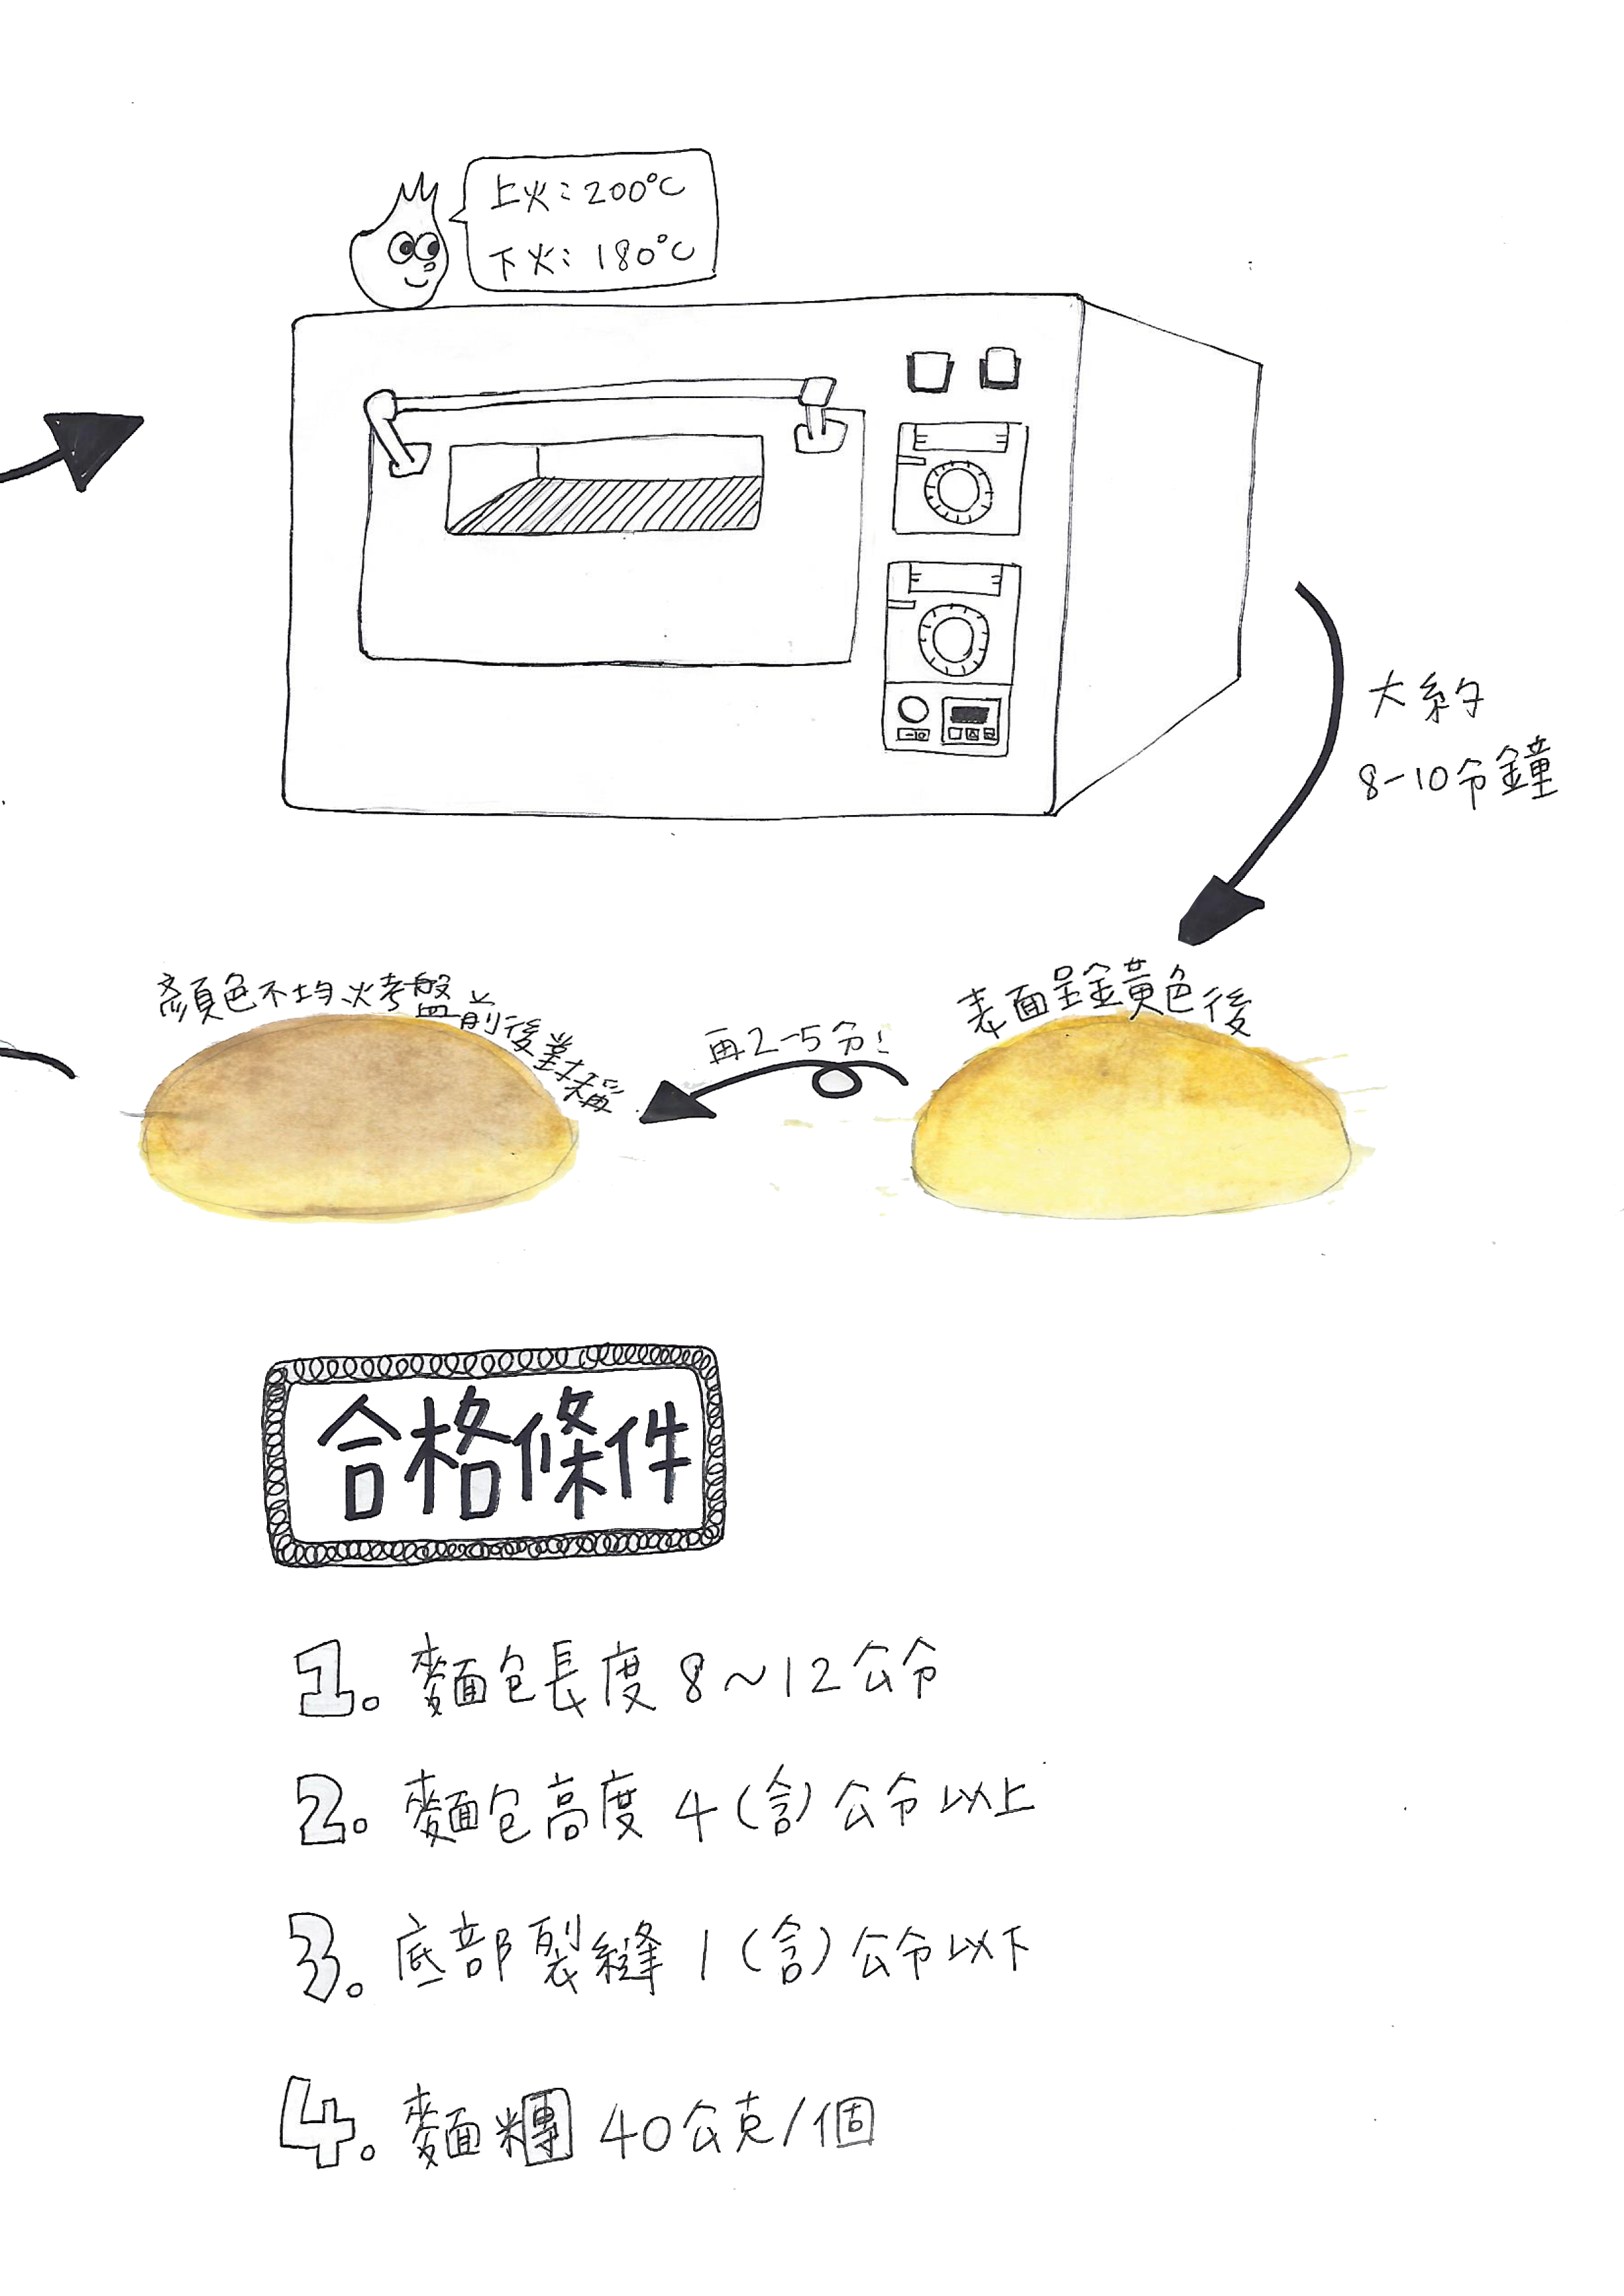 上火：200°C
下火：180°C
大約
8-10分鐘
表面呈金黃色後
再2-5分！
顏色不均 烤盤前後對稱
合格條件
1. 麵包長度 8～12公分
2. 麵包高度 4（含）公分以上
3. 底部裂縫 1（含）公分以下
4. 麵糰 40公克/個